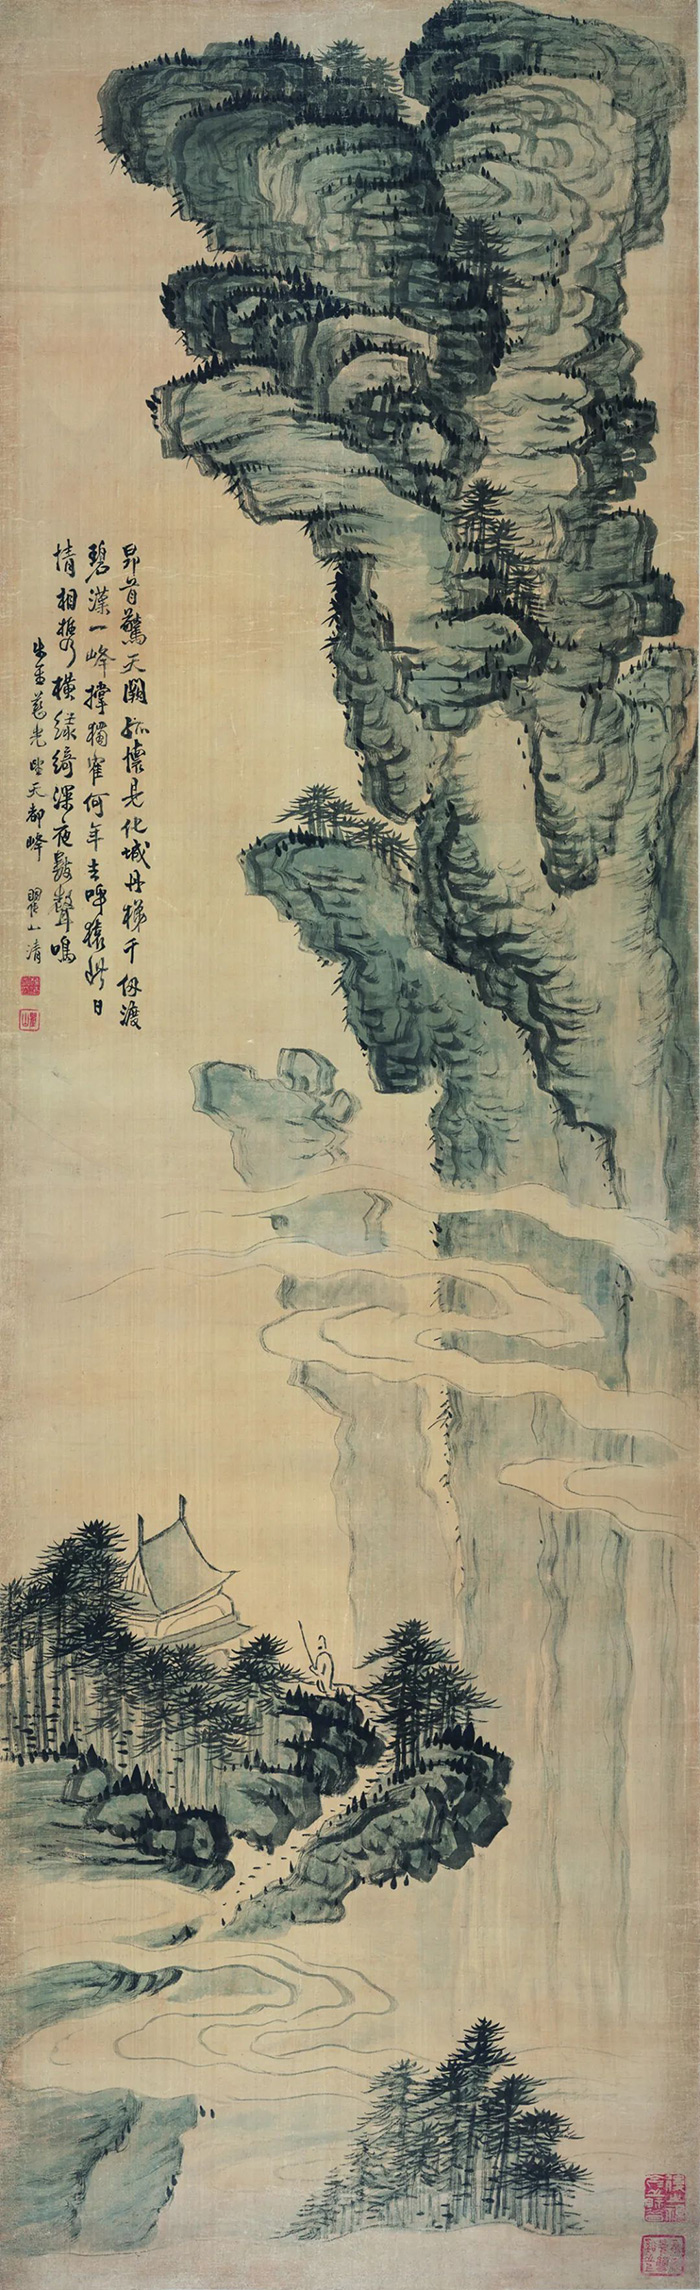 昂首驚天闕孤懷見化城丹梯千仞渡
碧漢一峰撐獨隺何年去呼猿此日
情相携橫綠綺深夜數聲鳴
慈光望天都峰 瞿山清
瞿山